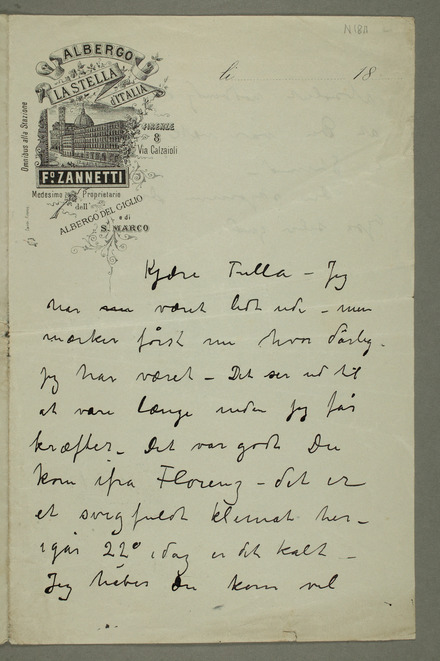 N 18A
ALBERGO
LA STELLA
d'ITALIA
Omnibus alla Stazione
FIRENZE
8
Via Calzaioli
Fo. ZANNETTI
Medesimo Proprietario
dell'
ALBERGO DEL GIGLIO
e di
S. MARCO
li 18
Kjære Tulla – Jeg
har været lidt ude – men
mærker først nu hvor dårlig
jeg har været – Det ser ud til
at vare længe inden jeg får
kræfter – Det var godt Du
kom ifra Florenz – det er
et svigfuldt klimat her –
igår 22° idag er det kalt –
Jeg håber Du kom vel